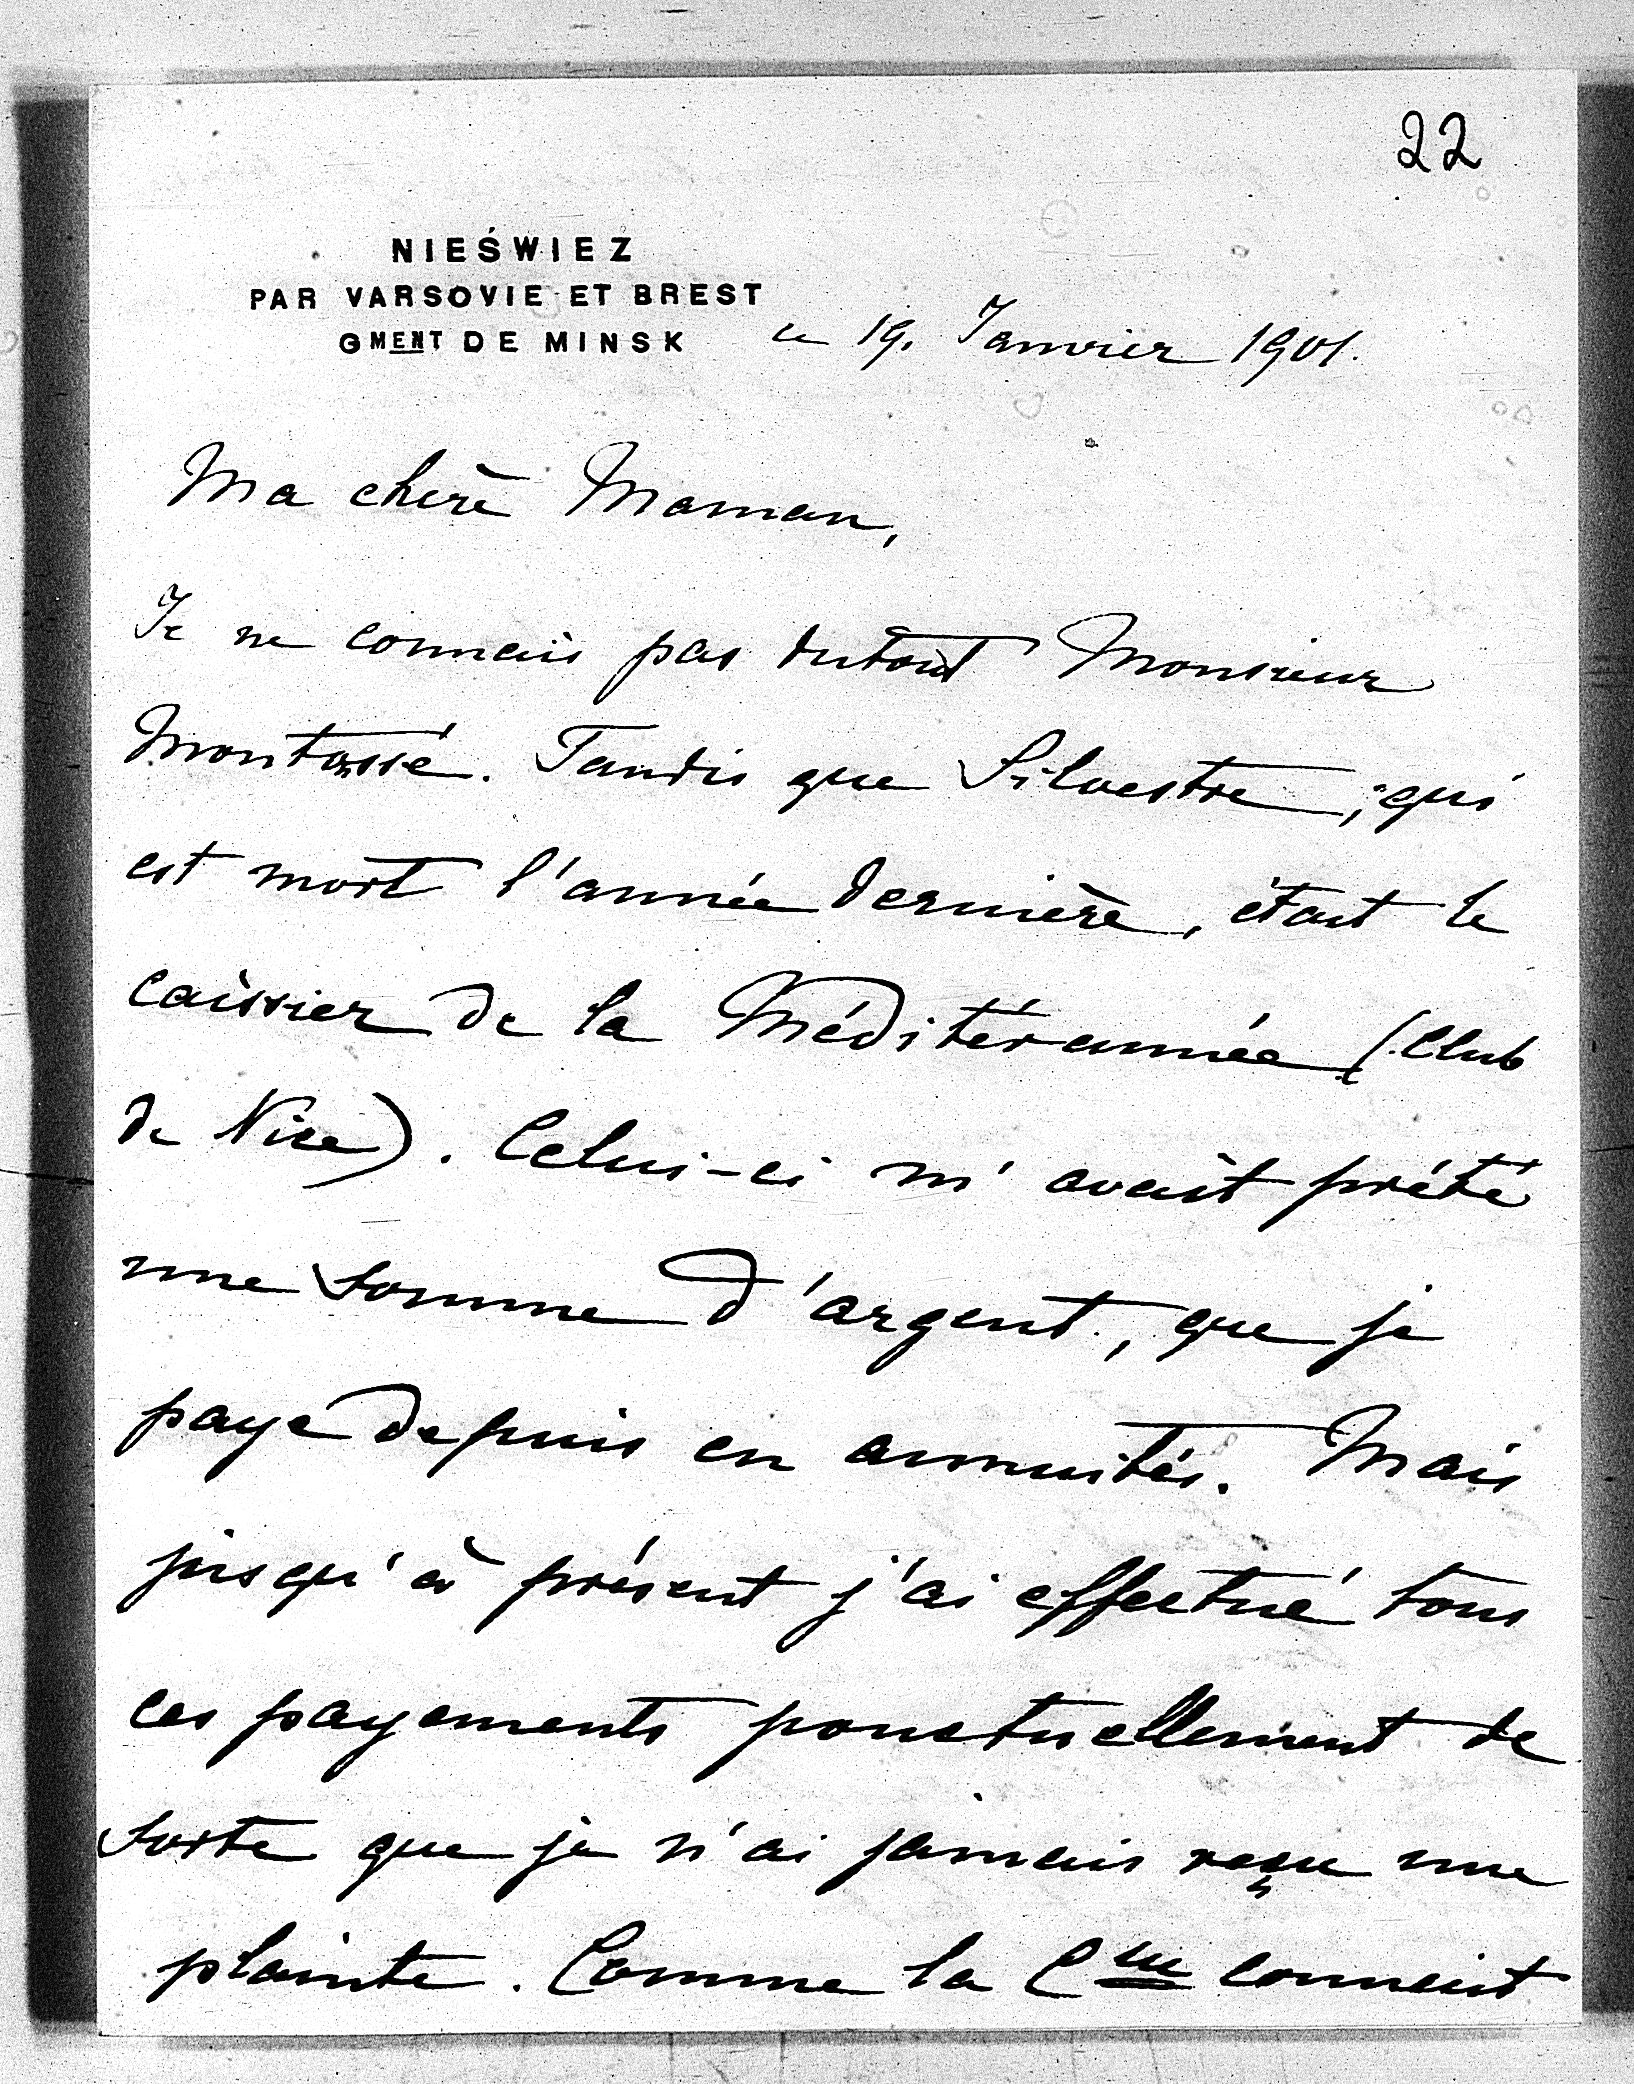 22
NIEŚWIEZ
PAR VARSOVIE ET BREST
GMENT DE MINSK
le 19. Janvier 1901.
Ma chère Maman,
Je ne connais pas dutout Monsieur
Montassé. Tandis que Silvestre, qui
est mort l'année dernière, était le
caissier de la Méditérannée (Club
de Nice). Celui-ci m'avait prêté
une somme d'argent, que je
paye depuis en annuités. Mais
jusqu'à présent j'ai effectué tous
ces payements ponctuellement de
sorte que je n'ai jamais reçu une
plainte. Comme la connait